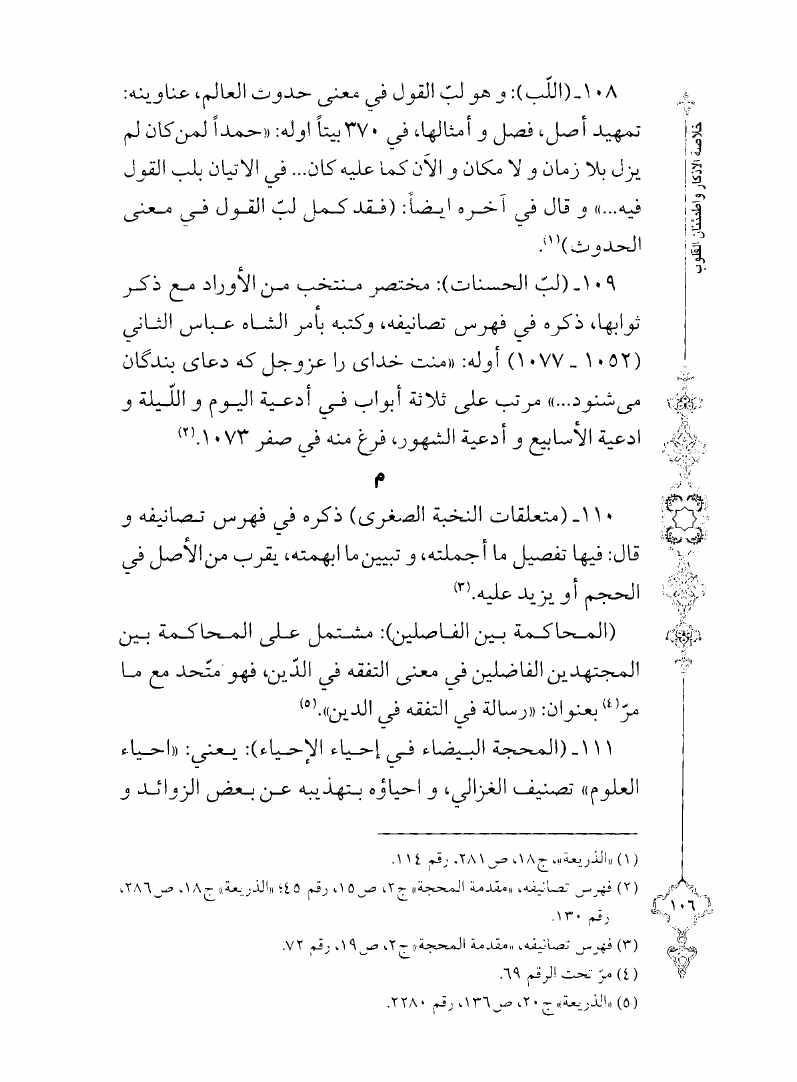 خلاصة الاذكار واطمئنان القلوب
١٠٨ـ (اللّب): و هو لبّ القول في معنى حدوث العالم، عناوينه:
تمهيد أصل، فصل و أمثالها، في ٣٧٠ بيتاً اوله: «حمداً لمن كان لم
يزل بلا زمان و لا مكان و الآن كما عليه كان... في الاتيان بلب القول
فيه...» و قال في آخره ايضاً: (فقد كمل لبّ القول في معنى
الحدوث)(١).
١٠٩ـ (لبّ الحسنات): مختصر منتخب من الأوراد مع ذكر
ثوابها، ذكره في فهرس تصانيفه، وكتبه بأمر الشاه عباس الثاني
(١٠٥٢ ـ ١٠٧٧) أوله: «منت خداى را عزوجل كه دعاى بندگان
مى‌شنود...» مرتب على ثلاثة أبواب في أدعية اليوم و اللّيلة و
ادعية الأسابيع و أدعية الشهور، فرغ منه في صفر ١٠٧٣.(٢)
م
١١٠ـ (متعلقات النخبة الصغرى) ذكره في فهرس تصانيفه و
قال: فيها تفصيل ما أجملته، و تبيين ما ابهمته، يقرب من الأصل في
الحجم أو يزيد عليه.(٣)
(المحاكمة بين الفاضلين): مشتمل على المحاكمة بين
المجتهدين الفاضلين في معنى التفقه في الدّين، فهو متّحد مع ما
مرّ(٤) بعنوان: «رسالة في التفقه في الدين».(٥)
١١١ـ (المحجة البيضاء في إحياء الإحياء): يعني: «احياء
العلوم» تصنيف الغزالي، و احياؤه بتهذيبه عن بعض الزوائد و
(١) «الذريعة»، ج١٨، ص٢٨١، رقم ١١٤.
(٢) فهرس تصانيفه، «مقدمة المحجة» ج٢، ص١٥، رقم ٤٥؛ «الذريعة» ج١٨، ص٢٨٦،
رقم ١٣٠.
(٣) فهرس تصانيفه، «مقدمة المحجة» ج٢، ص١٩، رقم ٧٢.
(٤) مرّ تحت الرقم ٦٩.
(٥) «الذريعة» ج٢٠، ص١٣٦، رقم ٢٢٨٠.
١٠٦